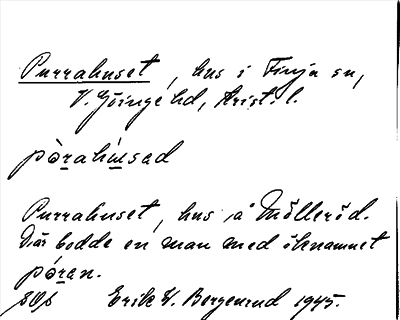 Purrahuset, hus i Finja sn,
V. Göinge hd, Krist. l.
pòrahùsad
Purrahuset, hus å Mölleröd.
Där bodde en man med öknamnet
póran.
Erik W. Bergenrud 1945.